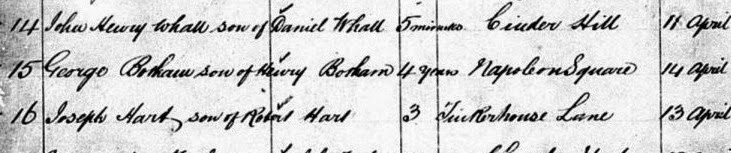 14 John Henry Whall son of Daniel Whall 5 minutes Cinder Hill 11 April
15 George Botham son of Henry Botham 4 years Napoleon Square 14 April
16 Joseph Hart son of Robert Hart 3 Tinkerhouse Lane 13 April